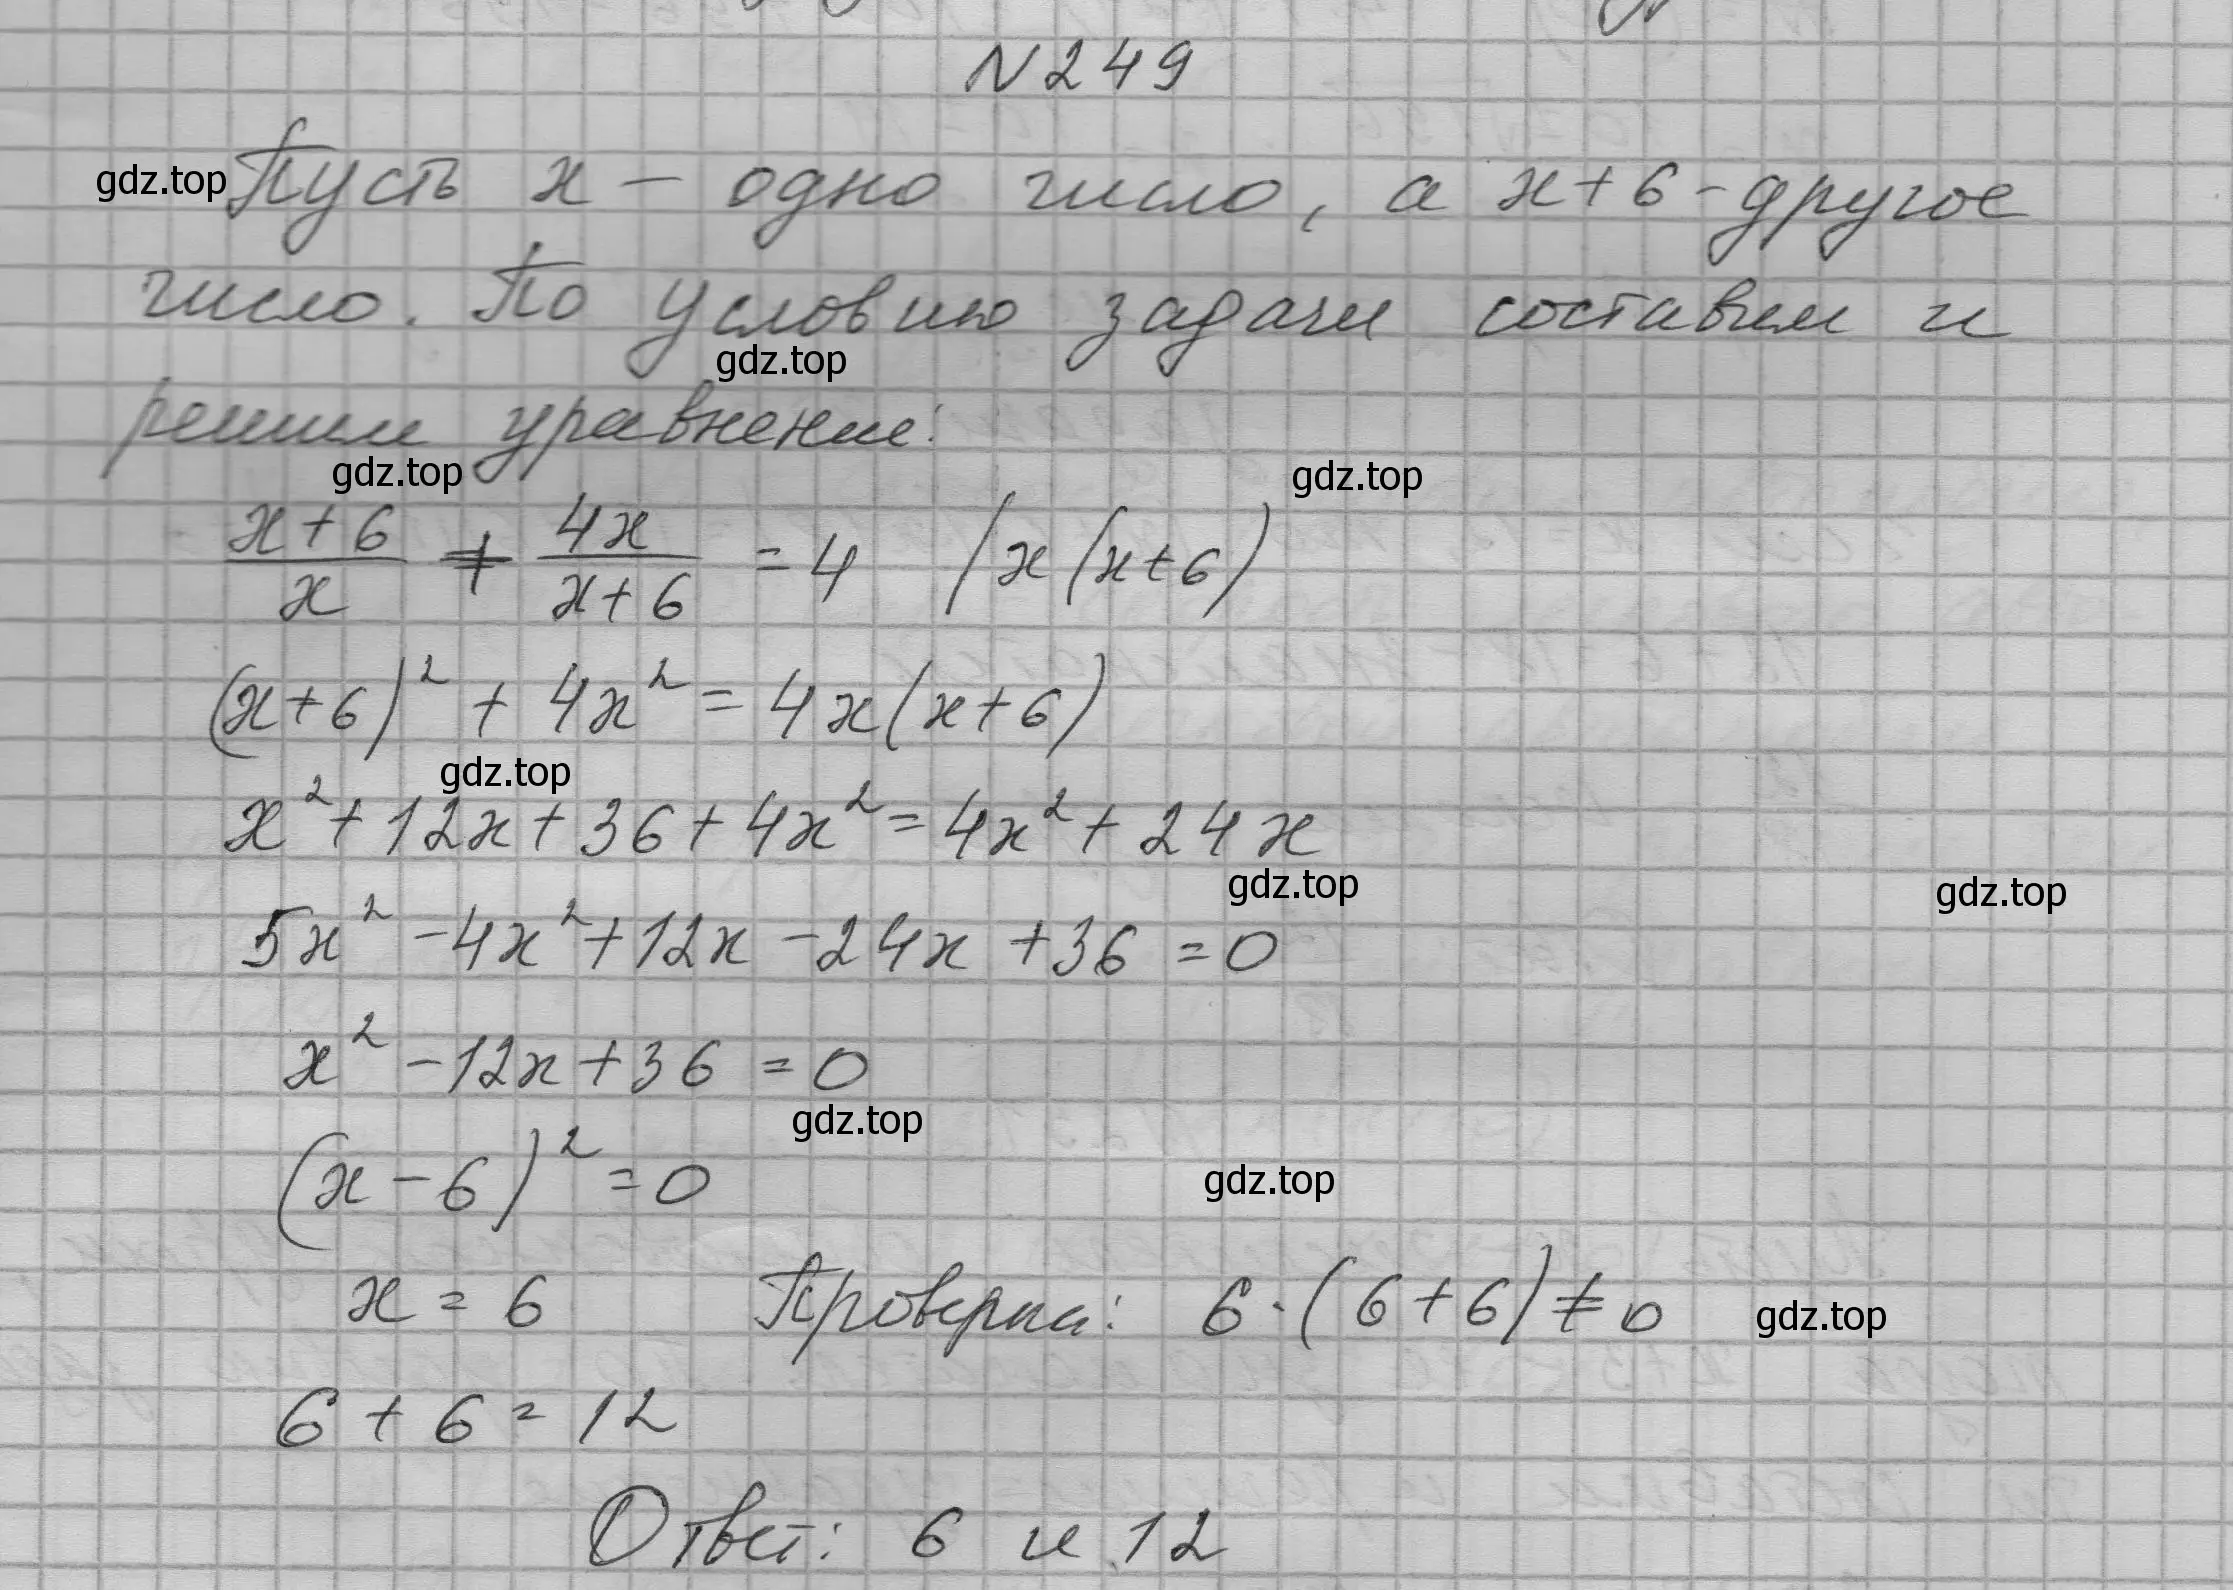 N 249
gdz.top Пусть x – одно число, а x+6 – другое
число. По условию задачи составим и
gdz.top
решим уравнение:
gdz.top gdz.top
(x+6)/x + 4x/(x+6) = 4 | x(x+6)
(x+6)² + 4x² = 4x(x+6)
gdz.top
x² + 12x + 36 + 4x² = 4x² + 24x
gdz.top gdz.top
5x² - 4x² + 12x - 24x + 36 = 0
x² - 12x + 36 = 0
gdz.top
(x - 6)² = 0
gdz.top
x = 6 Проверка: 6·(6+6) ≠ 0 gdz.top
6 + 6 = 12
Ответ: 6 и 12